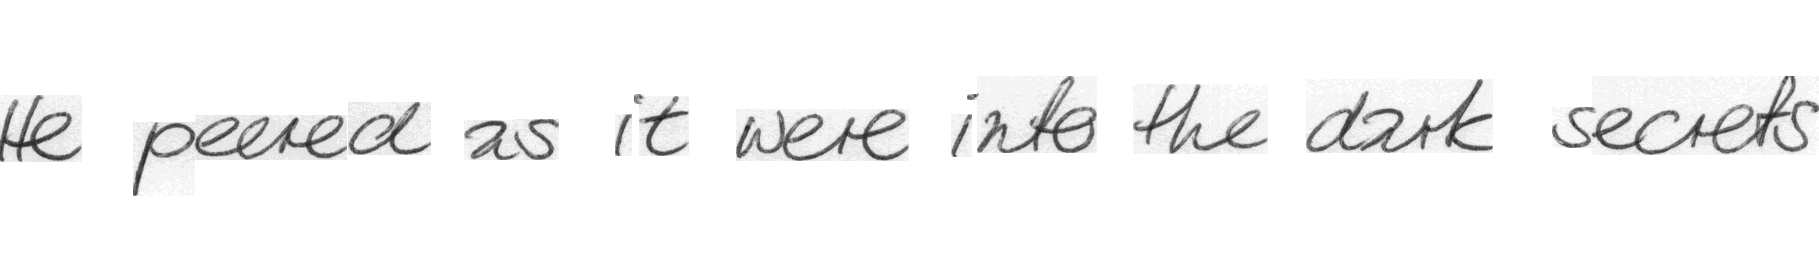 He peered as it were into the dark secrets